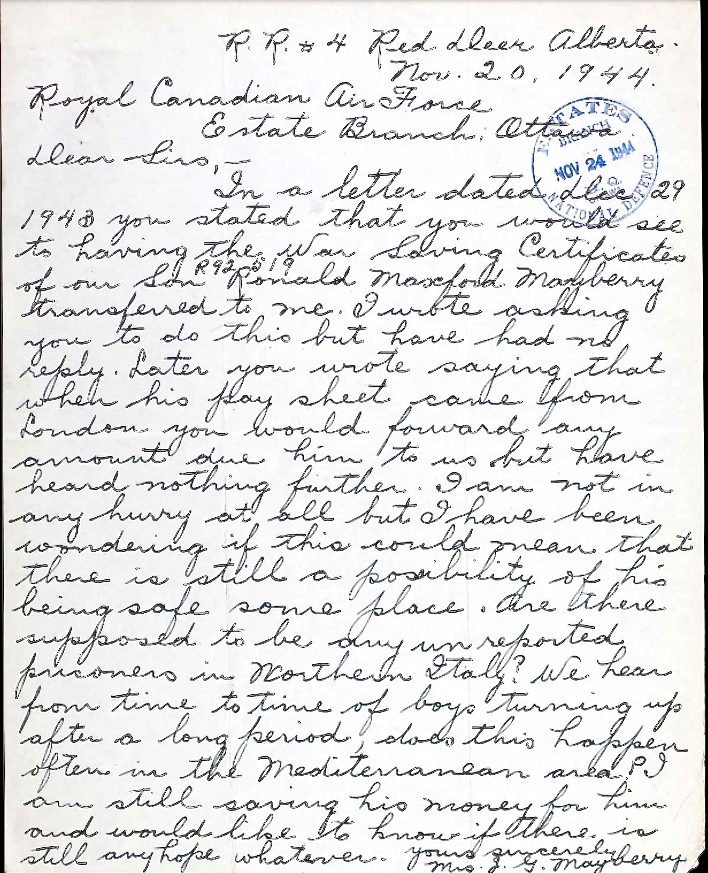 R. R. # 4 Red Deer Alberta.
Nov. 20, 1944.
Royal Canadian Air Force
Estate Branch, Ottawa.
ESTATES
BRANCH
NOV 24 1944
NATIONAL DEFENCE
Dear Sirs,—
In a letter dated Dec 29
1943 you stated that you would see
to having the War Saving Certificates
R92519
of our Son Ronald Maxford Mayberry
transferred to me. I wrote asking
you to do this but have had no
reply. Later you wrote saying that
when his pay sheet came from
London you would forward any
amount due him to us but have
heard nothing further. I am not in
any hurry at all but I have been
wondering if this could mean that
there is still a posibility of his
being safe some place. Are there
supposed to be any unreported
prisoners in Northern Italy? We hear
from time to time of boys turning up
after a long period, does this happen
often in the Mediterranean area? I
am still saving his money for him
and would like to know if there is
still any hope whatever. yours sincerely
Mrs. J. G. Mayberry